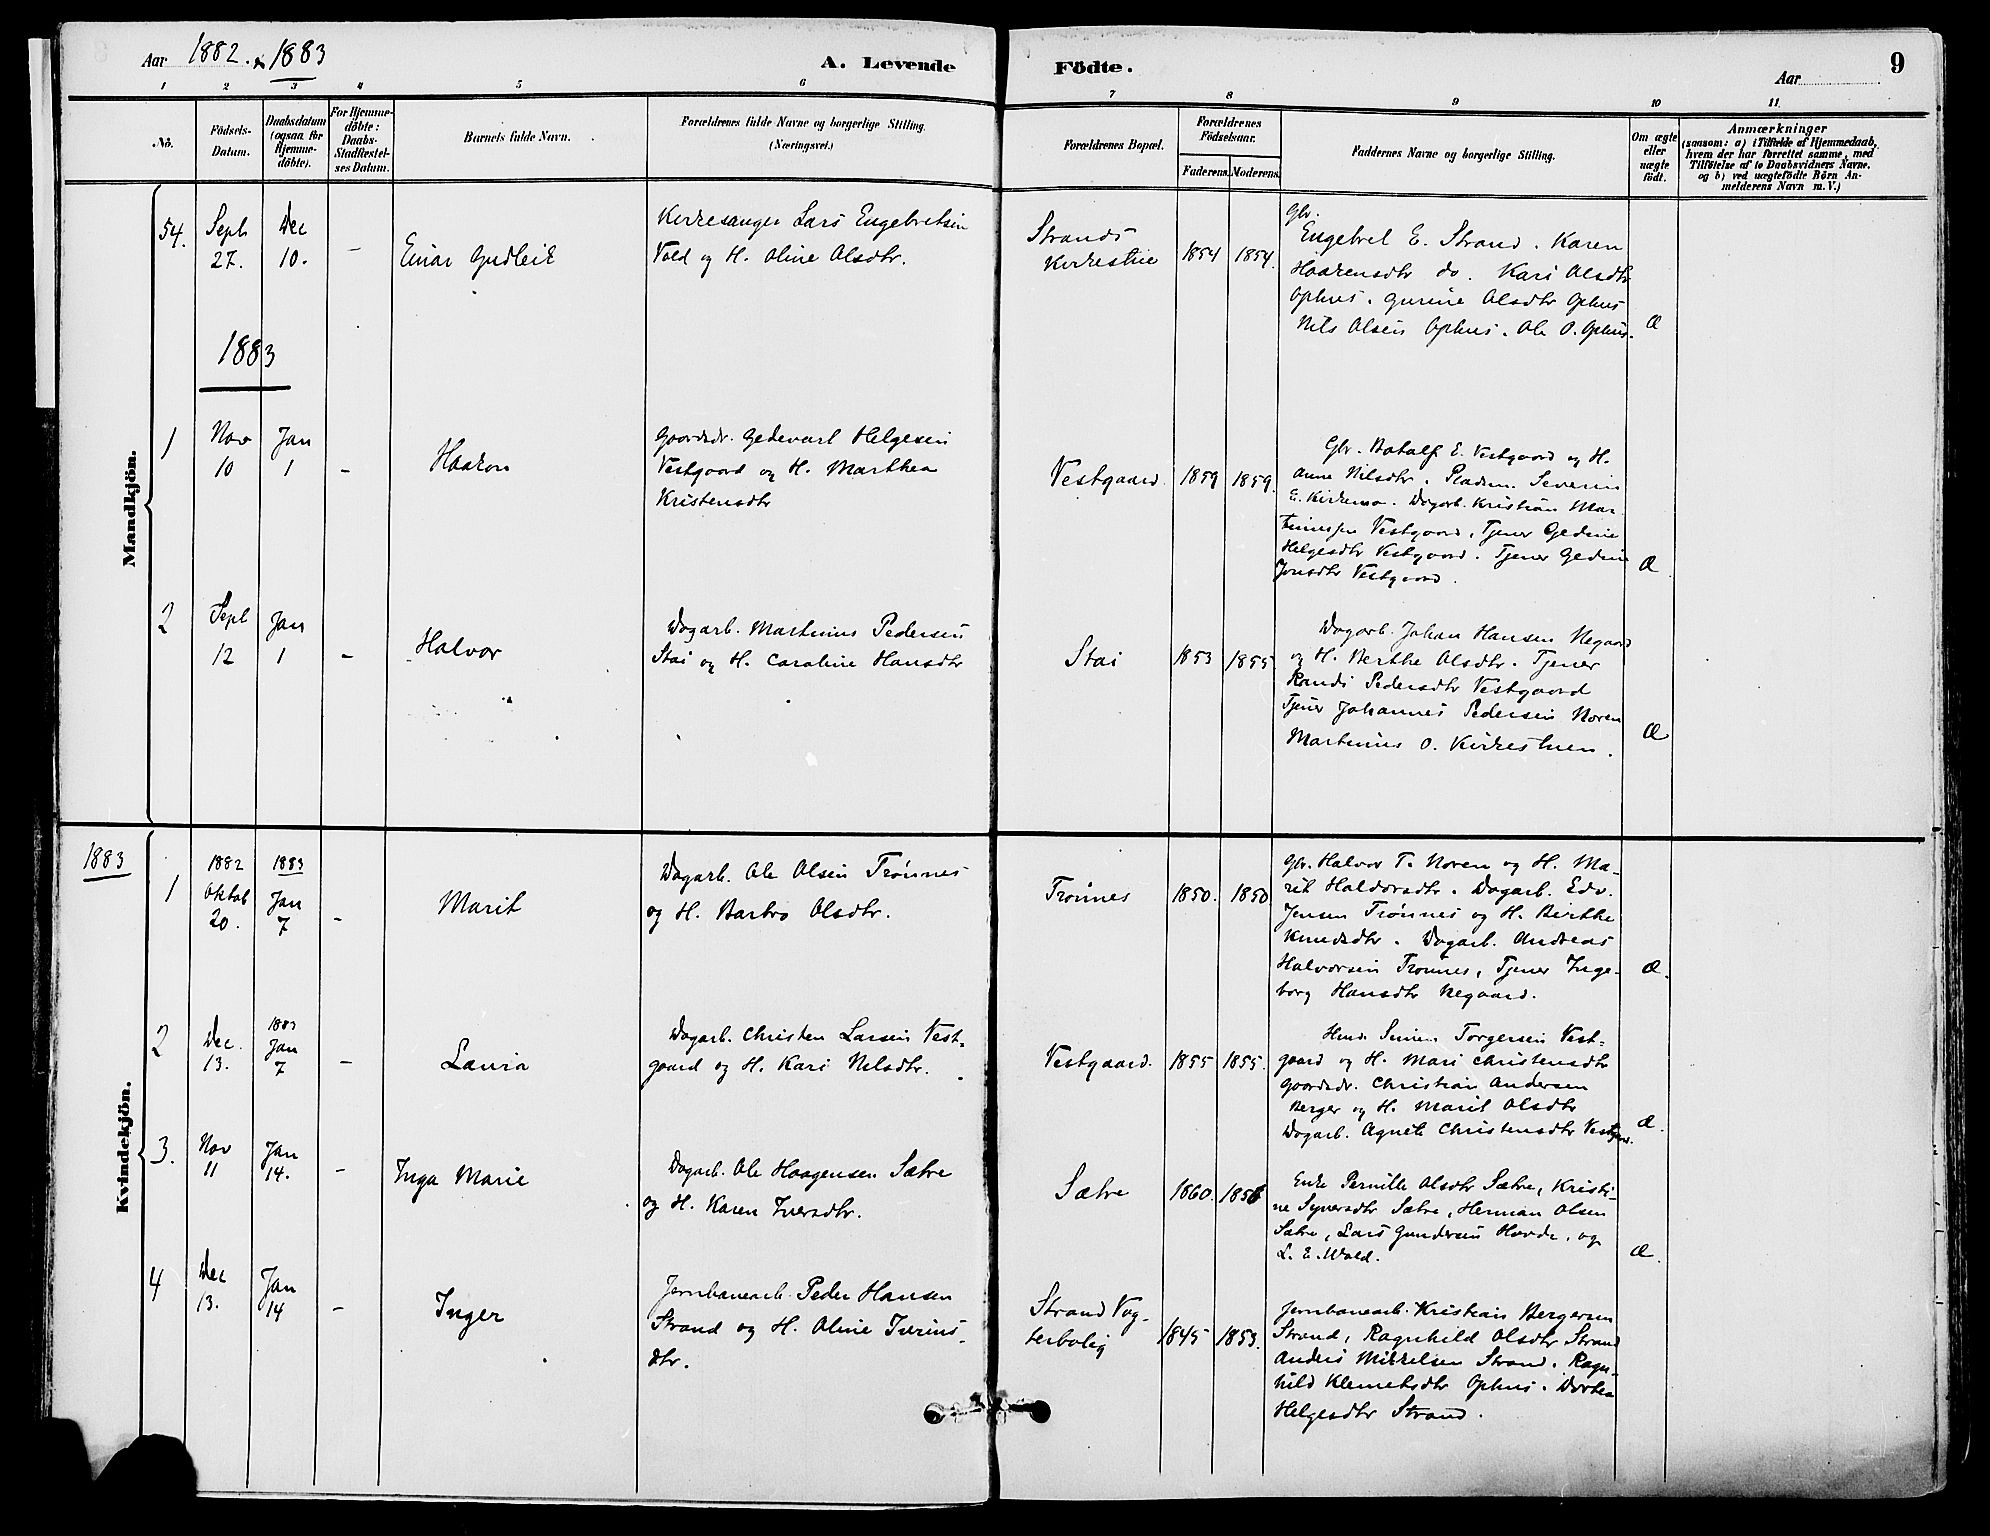 Aar 1882. & 1883
A. Levende
Födte.
Aar
9
1 2 3 4 5 6 7 8 9 10 11
No.
Födsels-
Datum.
Daabsdatum
(ogsaa for
Hjemme-
döbte).
For Hjemme-
döbte:
Daabs-
Stadfæstel-
ses Datum.
Barnets fulde Navn.
Forældrenes fulde Navne og borgerlige Stilling.
(Næringsvei.)
Forældrenes Bopæl.
Forældrenes
Födselsaar.
Faderens. Moderens.
Faddernes Navne og borgerlige Stilling.
Om ægte
eller
uægte
födt.
Anmærkninger
(saasom: a) i Tilfælde af Hjemmedaab,
hvem der har forrettet samme, med
Tilföielse af to Daabsvidners Navne,
og b) ved uægtefödte Börn An-
melderens Navn m. V.)
Mandkjön.
54.
Sept
27.
Dec
10.
-
Einar Gudleik
Kirkesanger Lars Engebretsen
Vold og H. Oline Olsdtr.
Strands
Kirkestue
1854
1854.
Gbr.
Engebret E. Strand. Karen
Haakensdtr do. Kari Olsdtr
Ophus. Gurine Olsdtr Ophus
Nils Olsen Ophus. Ole O. Ophus.
Æ
1883
1
Nov
10
Jan
1
-
Haakon
Gaardbr. Gedevart Helgesen
Vestgaard og H. Marthea
Kristensdtr
Vestgaard
1859
1859.
Gbr. Botolf E. Vestgaard og H.
Anne Nilsdtr. Pladsm. Severin
E. Kirkemo. Dagarb. Kristian Mar-
tinussen Vestgaard, Tjener Gedine
Helgesdtr Vestgaard. Tjener Gedine
Jonsdtr Vestgaard.
Æ
2
Sept
12
Jan
1
-
Halvor
Dagarb. Martinius Pedersen
Stai og H. Caroline Hansdtr
Stai
1853
1855
Dagarb. Johan Hansen Negaard
og H. Berthe Olsdtr. Tjener
Randi Pedersdtr Vestgaard
Tjener Johannes Pedersen Noren
Martinius O. Kirkestuen.
Æ
Kvindekjön.
1883
1
1882
Oktob
20.
1883
Jan
7
-
Marit
Dagarb. Ole Olsen Trønnes
og H. Barbro Olsdtr.
Trønnes
1850.
1850
Gbr. Halvor T. Noren og H. Ma-
rit Haldorsdtr. Dagarb. Edv.
Jensen Trønnes og H. Berthe
Knudsdtr. Dagarb. Andreas
Halvorsen Trønnes, Tjener Inge-
borg Hansdtr Negaard.
Æ.
2
Dec.
13.
1883
Jan
7
-
Laura
Dagarb. Christen Larsen Vest-
gaard og H. Kari Nilsdtr.
Vestgaard.
1855
1855.
Simen Torgersen Vest-
gaard og H. Mari Christensdtr
Gaardbr. Christian Andersen
Berger og H. Marit Olsdtr
Dagarb. Agnete Christensdtr Vestgrd.
Æ.
3.
Nov
11
Jan
14.
-
Inga Marie
Dagarb. Ole Haagensen Sætre
og H. Karen Iversdtr.
Sætre
1860.
1856
Enke Pernille Olsdtr Sætre, Kristi-
ne Syversdtr Sætre, Herman Olsen
Sætre, Lars Gundersen Hovde, og
L. E. Wold.
Æ.
4
Dec
13.
Jan
14
-
Inger
Jernbanearb. Peder Hansen
Strand og H. Oline Iverins-
dtr.
Strand Vog-
terbolig
1845
1853.
Jernbanearb. Kristian Bergersen
Strand, Ragnhild Olsdtr Strand
Anders Mikkelsen Strand. Ragn-
hild Klemetsdtr Ophus. Dortea
Helgesdtr Strand.